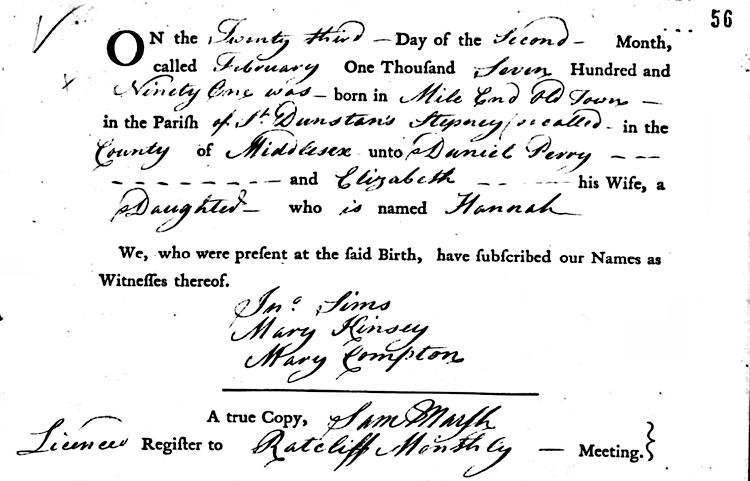 56
ON the Twenty third – Day of the Second – Month,
called February One Thouſand Seven Hundred and
Ninety One was – born in Mile End Old Town –
in the Pariſh of St. Dunstan's Stepney so called – in the
County of Middlesex unto Daniel Perry – – –
– – – – – – – – and Elizabeth – – – – his Wife, a
Daughter – who is named Hannah
We, who were preſent at the ſaid Birth, have ſubſcribed our Names as
Witneſſes thereof.
Jno. Sims
Mary Kinsey
Mary Compton
A true Copy, Sam Marsh
Regiſter to Ratcliff Monthly – Meeting.